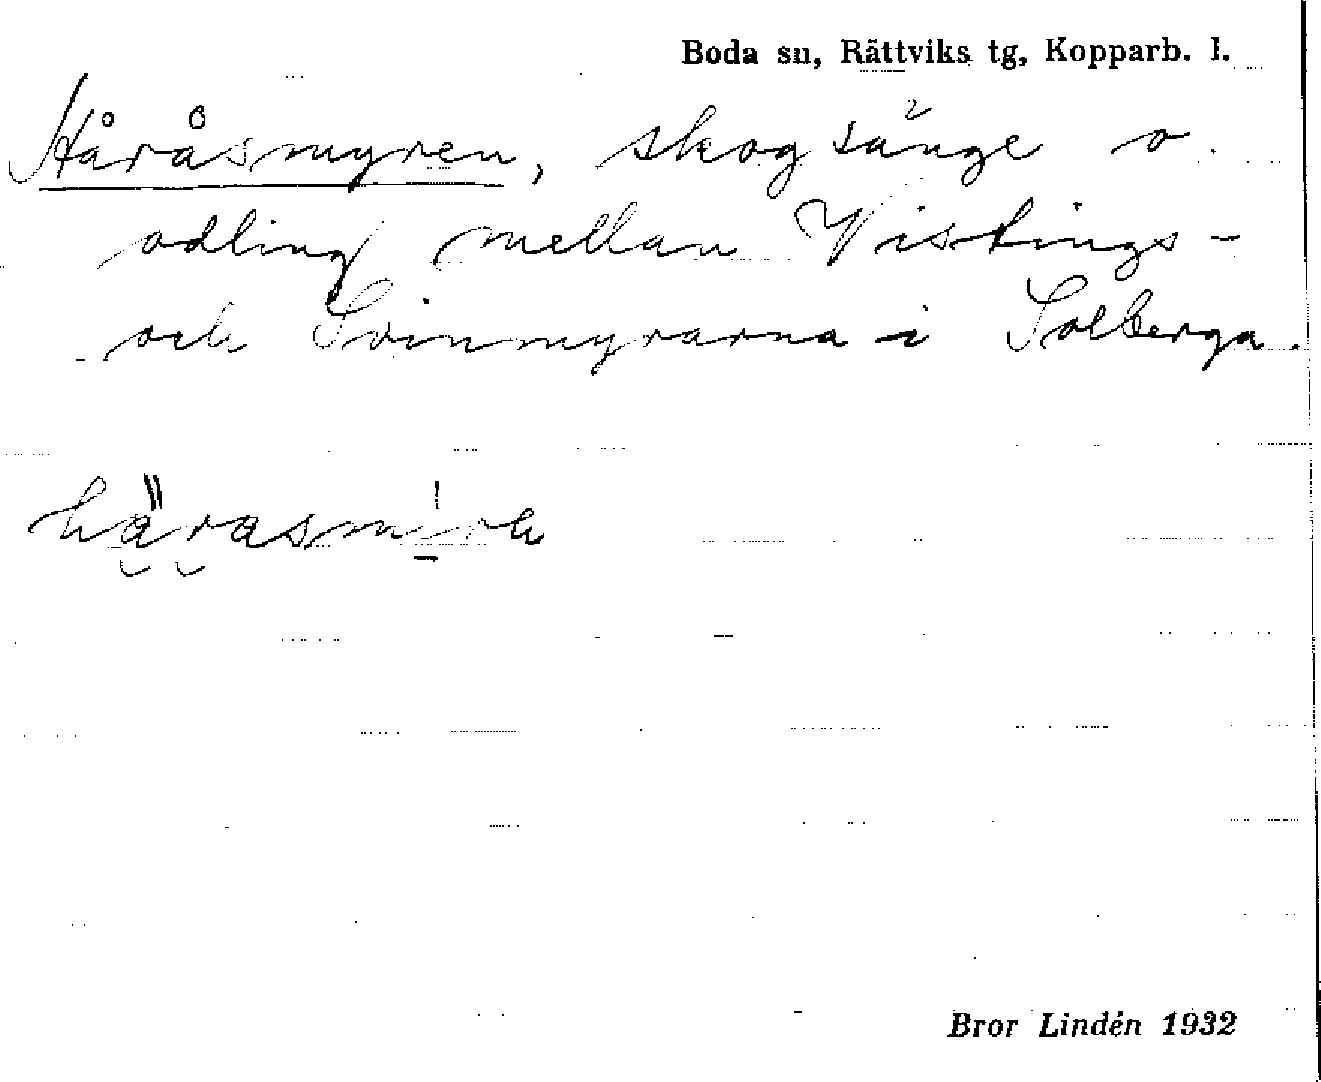 Boda sn, Rättviks tg, Kopparb. l.
Håråsmyren, skogsänge o.
odling mellan Vistings-
och Svinmyrarna i Solberga.
Bror Lindén 1932